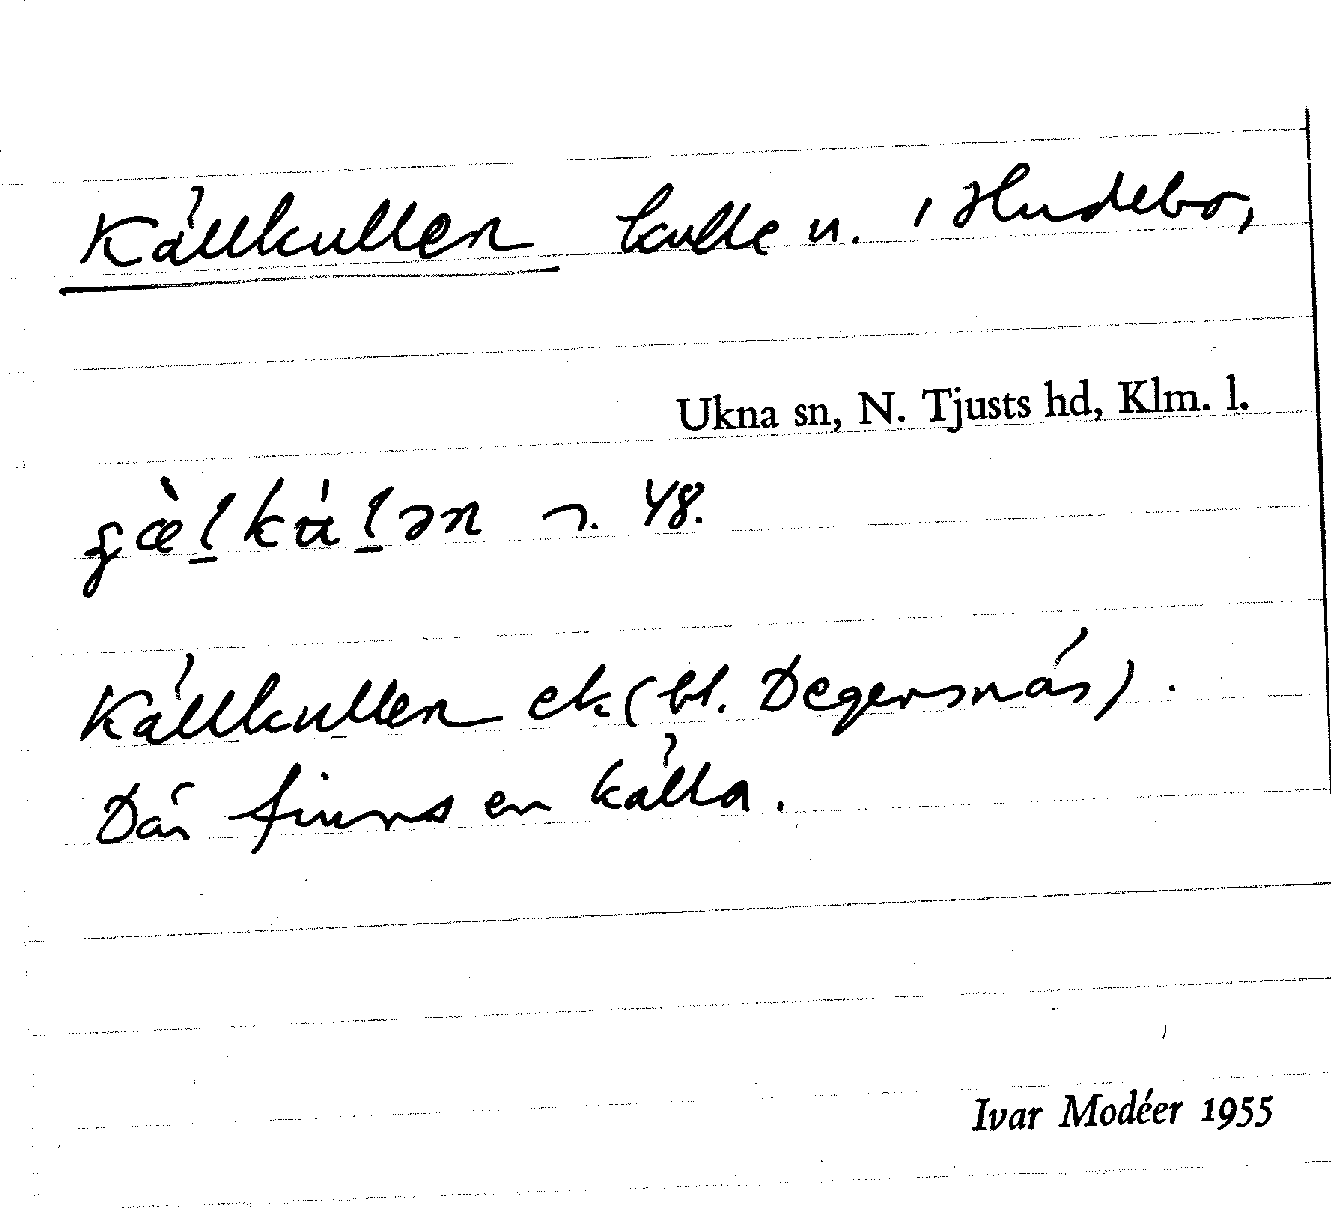 Källkullen kulle n. i Hudebo,
Ukna sn, N. Tjusts hd, Klm. l.
48.
Källkullen ek (bl. Degersnäs).
Där finns en källa.
Ivar Modéer 1955